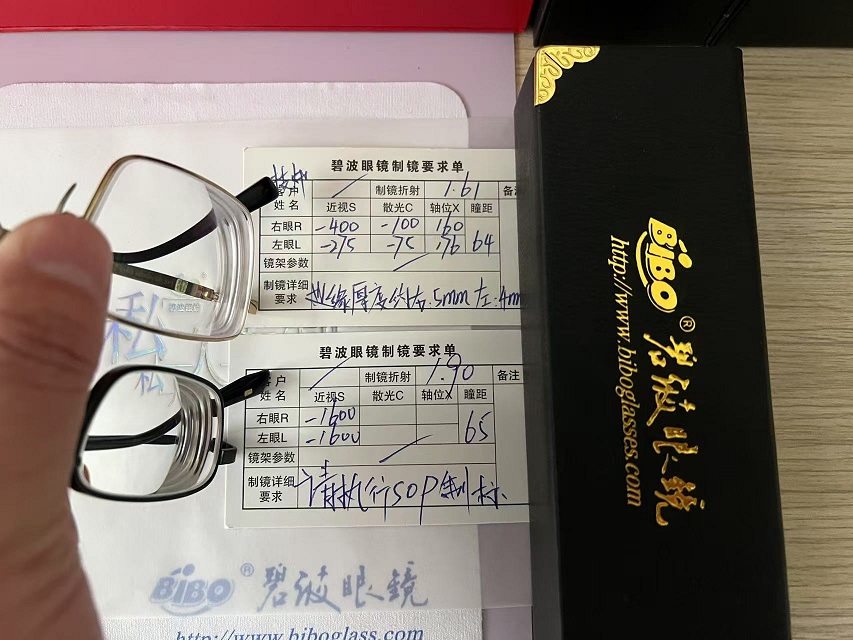 碧波眼镜制镜要求单
客户 制镜折射 1.61 备注
姓名 近视S 散光C 轴位X 瞳距
右眼R -400 -100 160
左眼L -275 -75 176 64
镜架参数
制镜详细 边缘厚度约右.5mm左.4mm
要求
碧波眼镜制镜要求单
客户 制镜折射 1.90 备注
姓名 近视S 散光C 轴位X 瞳距
右眼R -1600
左眼L -1600 65
镜架参数
制镜详细 请执行SOP制标
要求
私
私人
BiBO®碧波眼鏡
http://www.biboglass.com
BiBO®碧波眼鏡
http://www.biboglasses.com